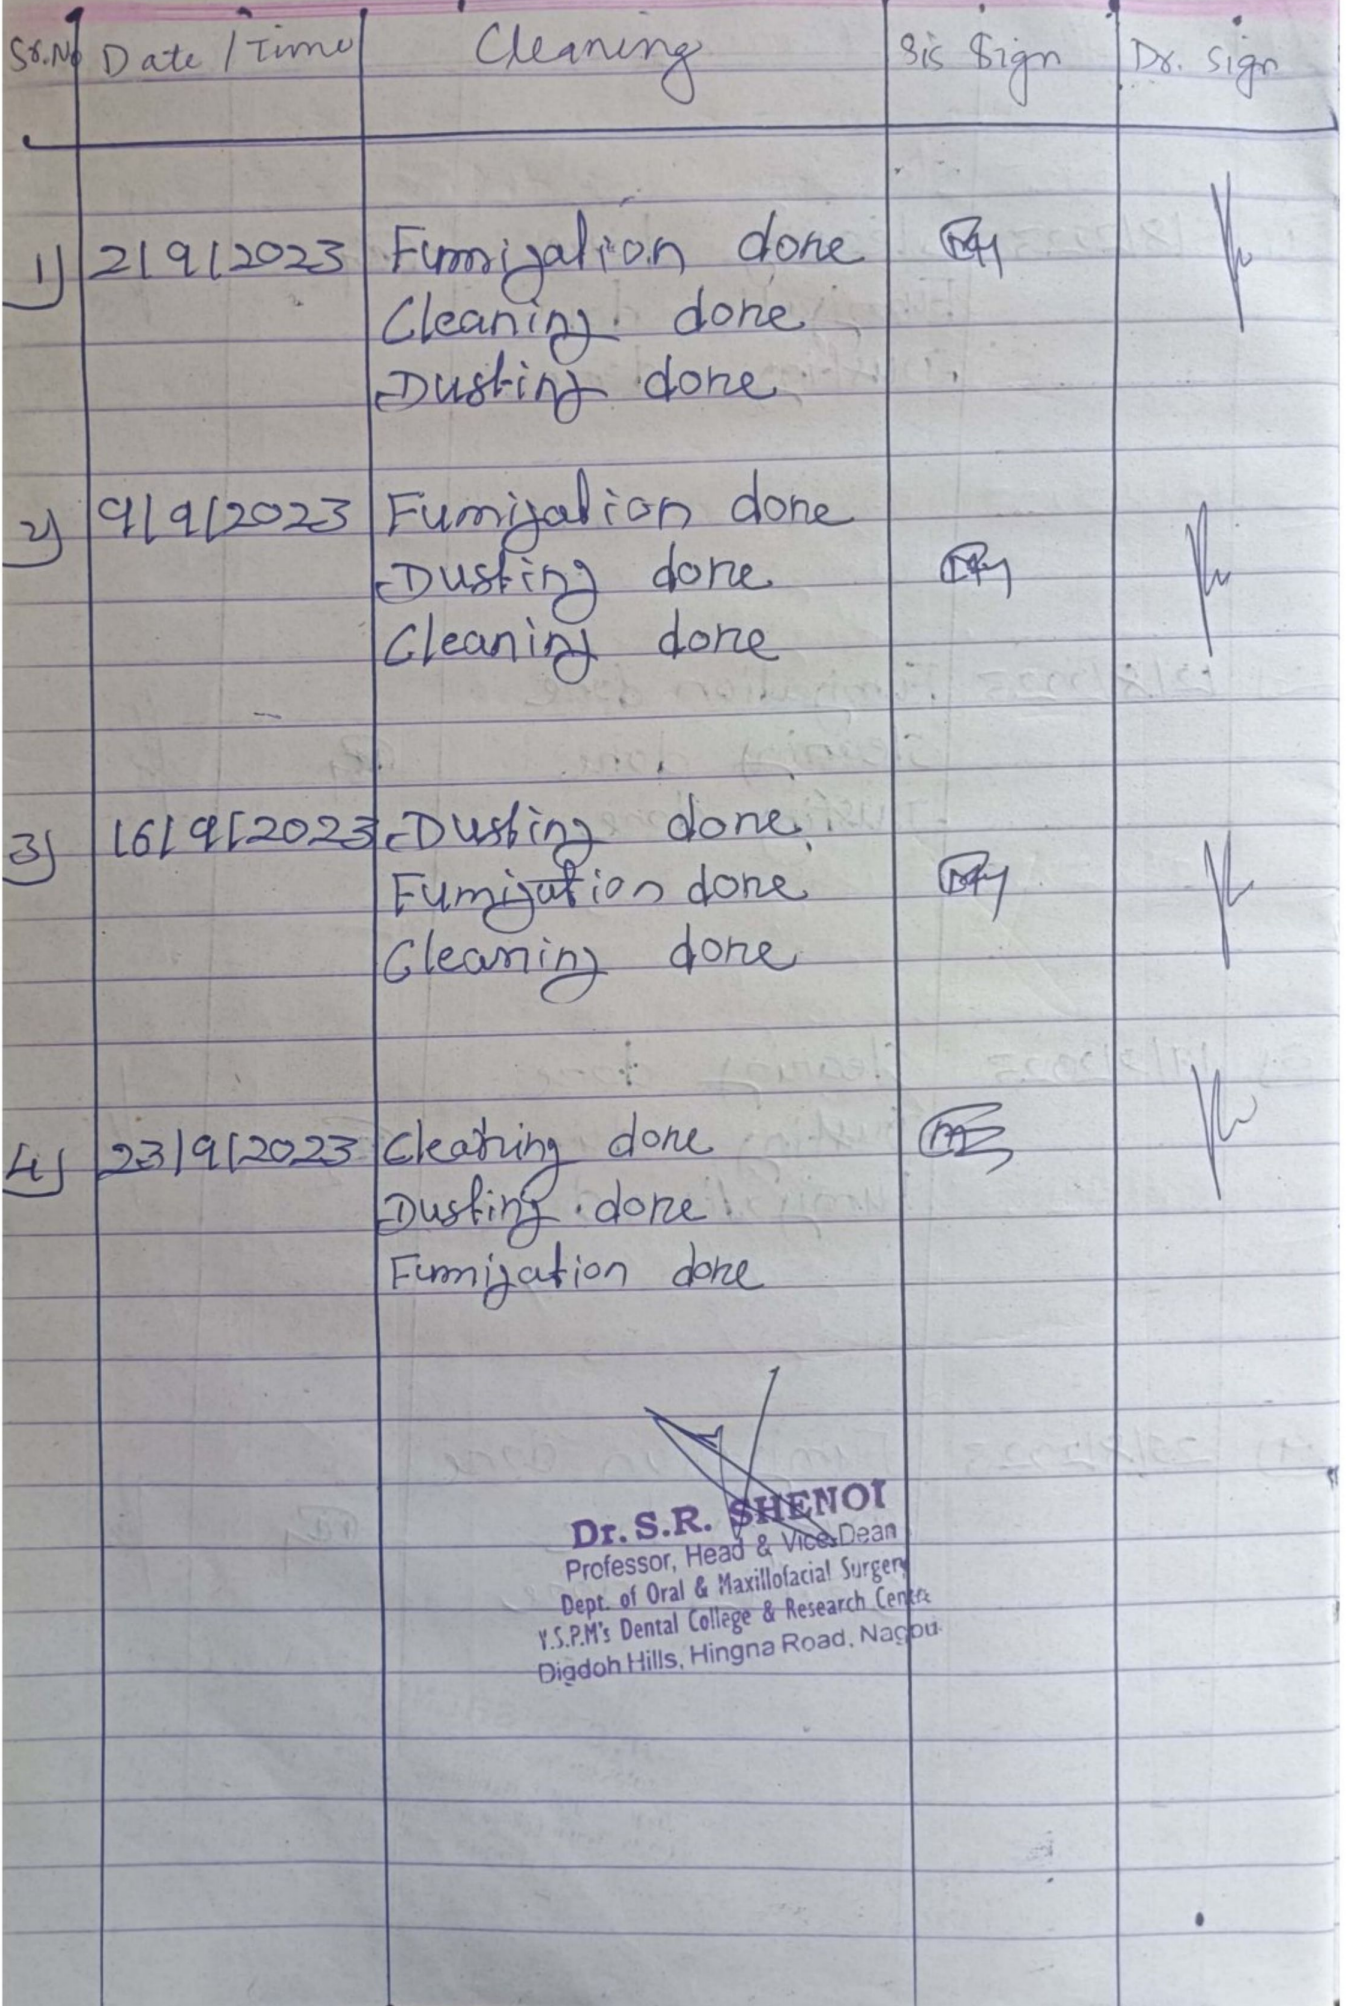 Sr.No Date / Time Cleaning Sis Sign Dr. Sign
1) 2/9/2023 Fumigation done
Cleaning done
Dusting done
2) 9/9/2023 Fumigation done
Dusting done
Cleaning done
3) 16/9/2023 Dusting done
Fumigation done
Cleaning done
4) 23/9/2023 Cleaning done
Dusting done
Fumigation done
Dr. S.R. SHENOI
Professor, Head & Vice-Dean
Dept. of Oral & Maxillofacial Surgery
Y.S.P.M's Dental College & Research Centre
Digdoh Hills, Hingna Road, Nagpu